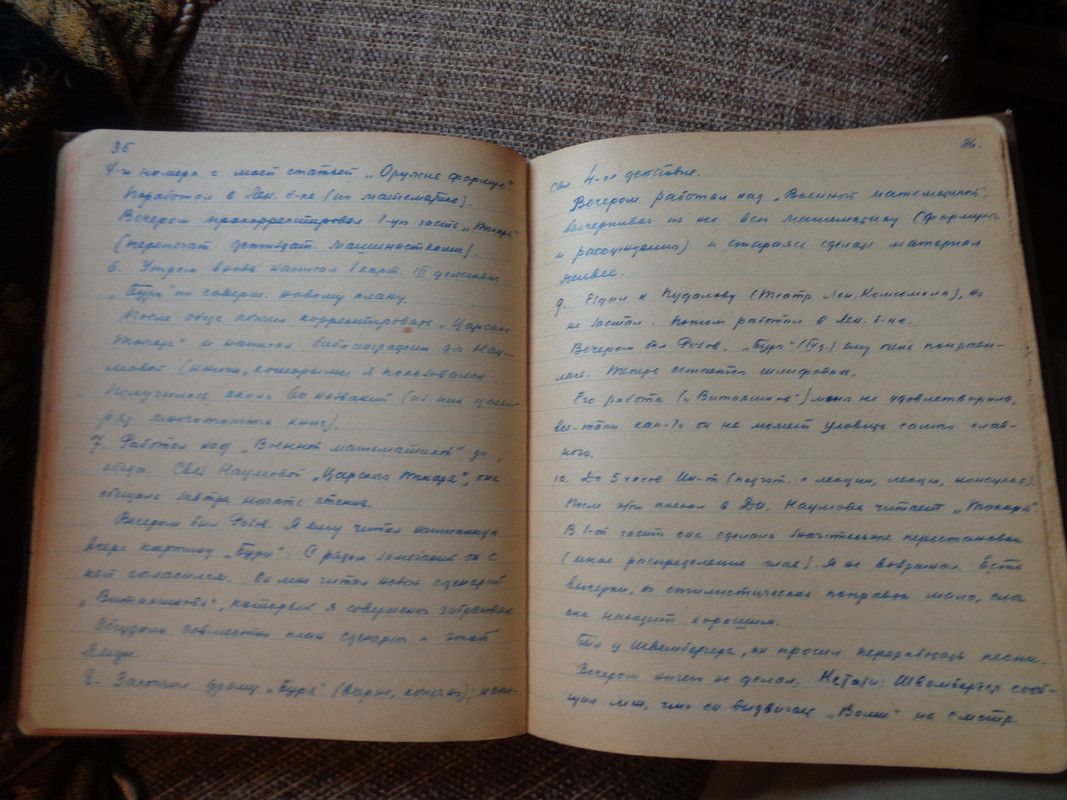 35
4-го номера с моей статьей „Оружие формул".
Поработал в Лен. б-ке (по математике).
Вечером прокорректировал 1-ую часть „Токаря"
(перепечат. детиздат. машинистками).
6. Утром вновь написал 1 карт. III действия
„Бури" по соверш. новому плану.
После обеда кончил корректировать „Царского
токаря" и написал библиографию для Нау-
мовой (книги, которыми я пользовался.
Получилось около 60 названий (из них целый
ряд многотомных книг).
7. Работал над „Военной математикой" до
обеда. Свез Наумовой „Царского Токаря", она
обещала завтра начать чтение.
Вечером был Розов. Я ему читал написанную
вчера картину „Бури". С рядом замечаний он с
ней согласился. Он мне читал новый сценарий
„Виталикова", который я совершенно забраковал.
Обсудили совместно план сценария к этой
вещи.
8. Закончил драму „Буря" (вчерне, конечно); напи-
36.
сал 4-ое действие.
Вечером работал над „Военной математикой",
вычеркивал из нее всю математику (формулы
и рассуждения) и стараясь сделать материал
живее.
9. Ездил к Пудалову (Театр Лен. Комсомола), но
не застал. Потом работал в Лен. б-ке.
Вечером был Розов. „Буря" (IV д.) ему очень понрави-
лась. Теперь остается шлифовка.
Его работа („Виталиков") меня не удовлетворила,
все-таки как-то он не может уловить самого глав-
ного.
10. До 5 часов Ин-т (подгот. к лекции, лекция, консульт.).
После этого поехал в ДИ. Наумова читает „Токаря".
В 1-ой части она сделала значительные перестановки
(иное распределение глав). Я не возражал. Есть
вычерки, но стилистических поправок мало, сла
она находит хорошим.
Был у Швембергера, он просил переделывать песни.
Вечером ничего не делал. Кстати: Швембергер сооб-
щил мне, что он выдвигает „Волш" на смотр